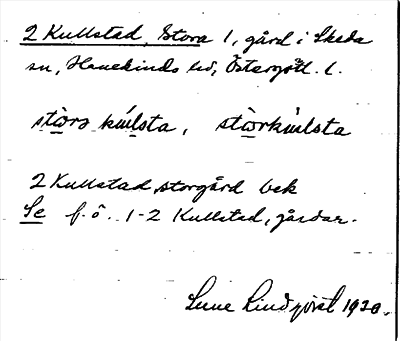 2 Kullstad, Stora 1, gård i Skeda
sn, Hanekinds hd, Östergötl. l.
stɷrɔ kúlsta, stɷrkúlsta
2 Kullstad, storgård bek
Se f. ö. 1-2 Kullstad, gårdar.
Sune Lindqvist 1920.